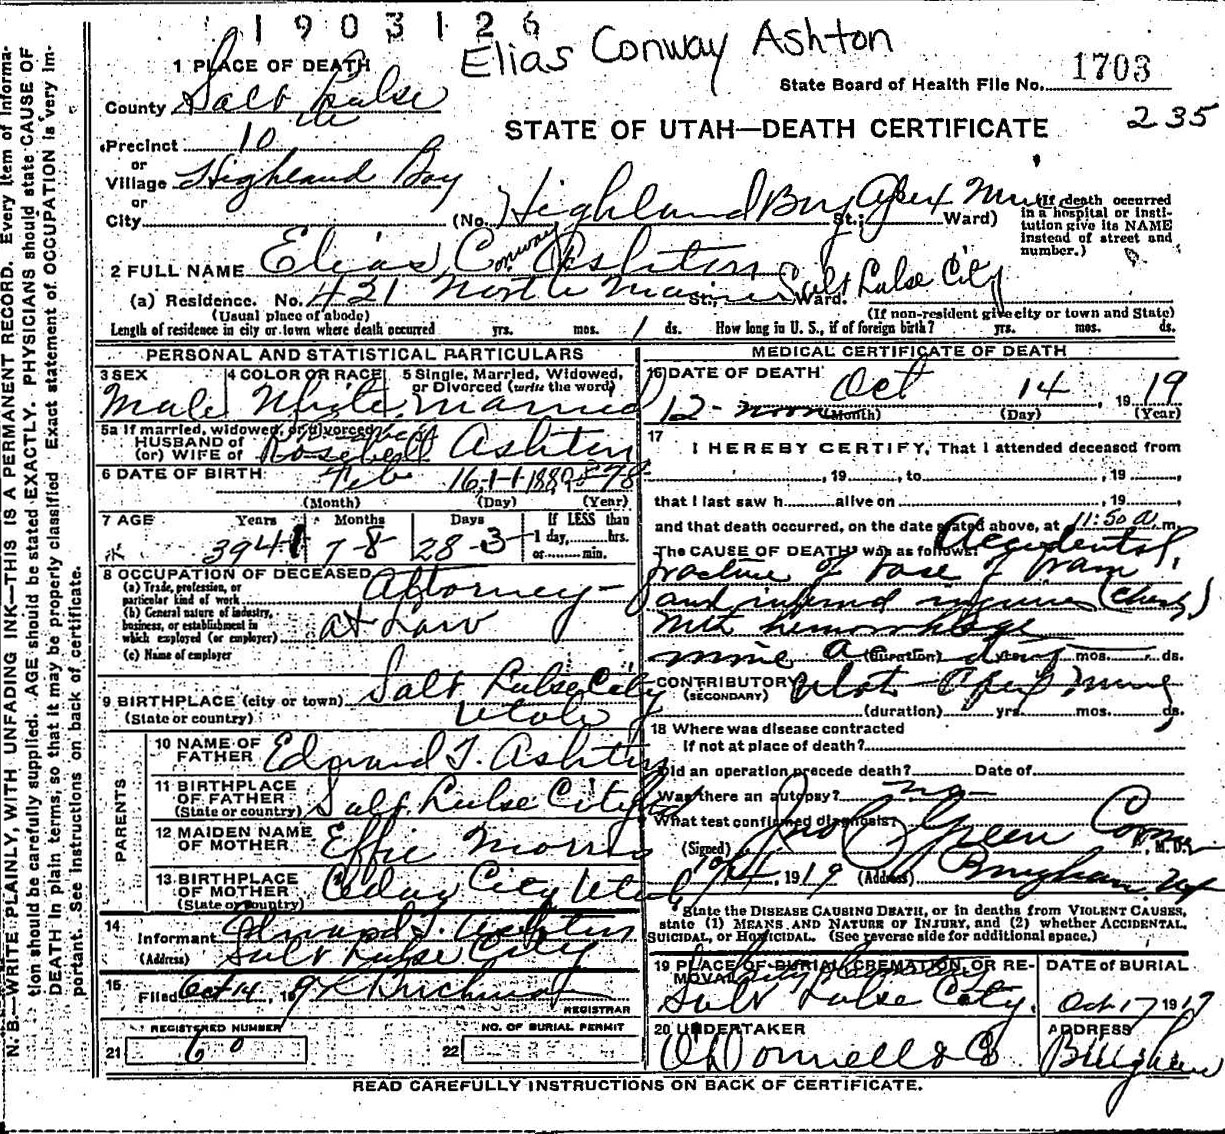 1903126
Elias Conway Ashton
1 PLACE OF DEATH
State Board of Health File No. 1703
County Salt Lake
235
STATE OF UTAH—DEATH CERTIFICATE
Precinct 10
or
Village Highland Boy
or
City (No. Highland Boy Apex Mine St.; Ward)
(If death occurred in a hospital or institution give its NAME instead of street and number.)
2 FULL NAME Elias Conway Ashton
(a) Residence. No. 421 North Main St., Ward. Salt Lake City
(Usual place of abode) (If non-resident give city or town and State)
Length of residence in city or town where death occurred yrs. mos. 1 ds. How long in U. S., if of foreign birth? yrs. mos. ds.
PERSONAL AND STATISTICAL PARTICULARS
3 SEX Male
4 COLOR OR RACE White
5 Single, Married, Widowed, or Divorced (write the word) Married
5a If married, widowed, or divorced
HUSBAND of
(or) WIFE of Ashton
6 DATE OF BIRTH Feb 16
(Month) (Day) (Year)
7 AGE Years Months Days If LESS than 1 day, hrs. or min.
39 41 7 8 28 3
8 OCCUPATION OF DECEASED
(a) Trade, profession, or particular kind of work Attorney-
(b) General nature of industry, business, or establishment in which employed (or employer) at Law
(c) Name of employer
9 BIRTHPLACE (city or town) Salt Lake City
(State or country) Utah
PARENTS
10 NAME OF FATHER Edward T. Ashton
11 BIRTHPLACE OF FATHER (State or country) Salt Lake City
12 MAIDEN NAME OF MOTHER Effie Morris
13 BIRTHPLACE OF MOTHER (State or country) Cedar City Utah
14 Informant Edward T. Ashton
(Address) Salt Lake City
15 Filed Oct 14, 19
REGISTRAR
REGISTERED NUMBER
21 60
NO. OF BURIAL PERMIT
22
MEDICAL CERTIFICATE OF DEATH
16 DATE OF DEATH Oct 14 1919
12-noon (Month) (Day) (Year)
17 I HEREBY CERTIFY, That I attended deceased from
, 19 , to , 19 ,
that I last saw h alive on , 19 ,
and that death occurred, on the date stated above, at 11:50 a m.
The CAUSE OF DEATH was as follows: Accidental
fracture of base of
and internal injuries (chest)
with hemorrhage
mine (duration) yrs. mos. ds.
CONTRIBUTORY (SECONDARY) Utah Apex Mine
(duration) yrs. mos. ds.
18 Where was disease contracted
if not at place of death?
Did an operation precede death? Date of
Was there an autopsy? no
What test confirmed diagnosis?
(Signed) Jno C Green Coroner, M. D.
10/14, 1919 (Address) Bingham Ut
State the DISEASE CAUSING DEATH, or in deaths from VIOLENT CAUSES, state (1) MEANS AND NATURE OF INJURY, and (2) whether ACCIDENTAL, SUICIDAL, or HOMICIDAL. (See reverse side for additional space.)
19 PLACE OF BURIAL, CREMATION, OR REMOVAL
Salt Lake City.
DATE of BURIAL
Oct 17 1919
20 UNDERTAKER
O'Donnell & Co
ADDRESS
Bingham
READ CAREFULLY INSTRUCTIONS ON BACK OF CERTIFICATE.
N. B.—WRITE PLAINLY, WITH UNFADING INK—THIS IS A PERMANENT RECORD. Every item of information should be carefully supplied. AGE should be stated EXACTLY. PHYSICIANS should state CAUSE OF DEATH in plain terms, so that it may be properly classified. Exact statement of OCCUPATION is very important. See instructions on back of certificate.